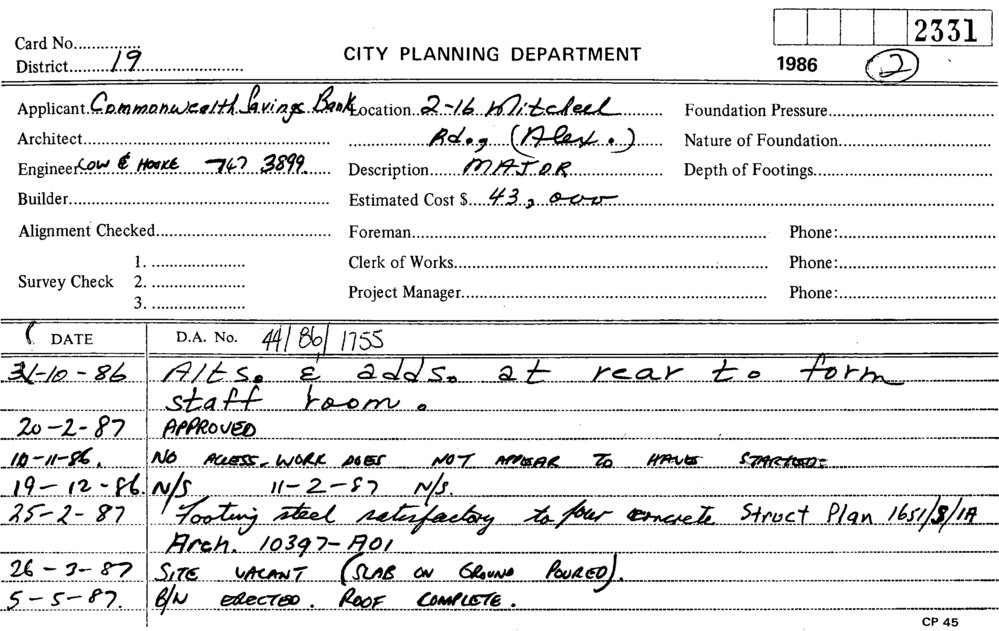 2331
Card No...............
District........19.................
CITY PLANNING DEPARTMENT
1986 2
Applicant. Commonwealth Savings Bank
Location. 2-16 Mitchell
Foundation Pressure
Architect
Rd., (Alex.)
Nature of Foundation
Engineer LOW & HOOKE 747 3899
Description MAJOR
Depth of Footings
Builder
Estimated Cost $ 43,000
Alignment Checked
Foreman
Phone:
Survey Check
1.
2.
3.
Clerk of Works
Phone:
Project Manager
Phone:
DATE D.A. No. 44/86/1755
31-10-86 Alts. & adds. at rear to form
staff room.
20-2-87 APPROVED
10-11-86. NO ACCESS-WORK DOES NOT APPEAR TO HAVE STARTED
19-12-86. N/S 11-2-87 N/S.
25-2-87 Footing steel satisfactory to pour concrete Struct Plan 1651/S/1A
Arch. 10397-A01
26-3-87 SITE VACANT (SLAB ON GROUND POURED).
5-5-87. B/N ERECTED. ROOF COMPLETE.
CP 45